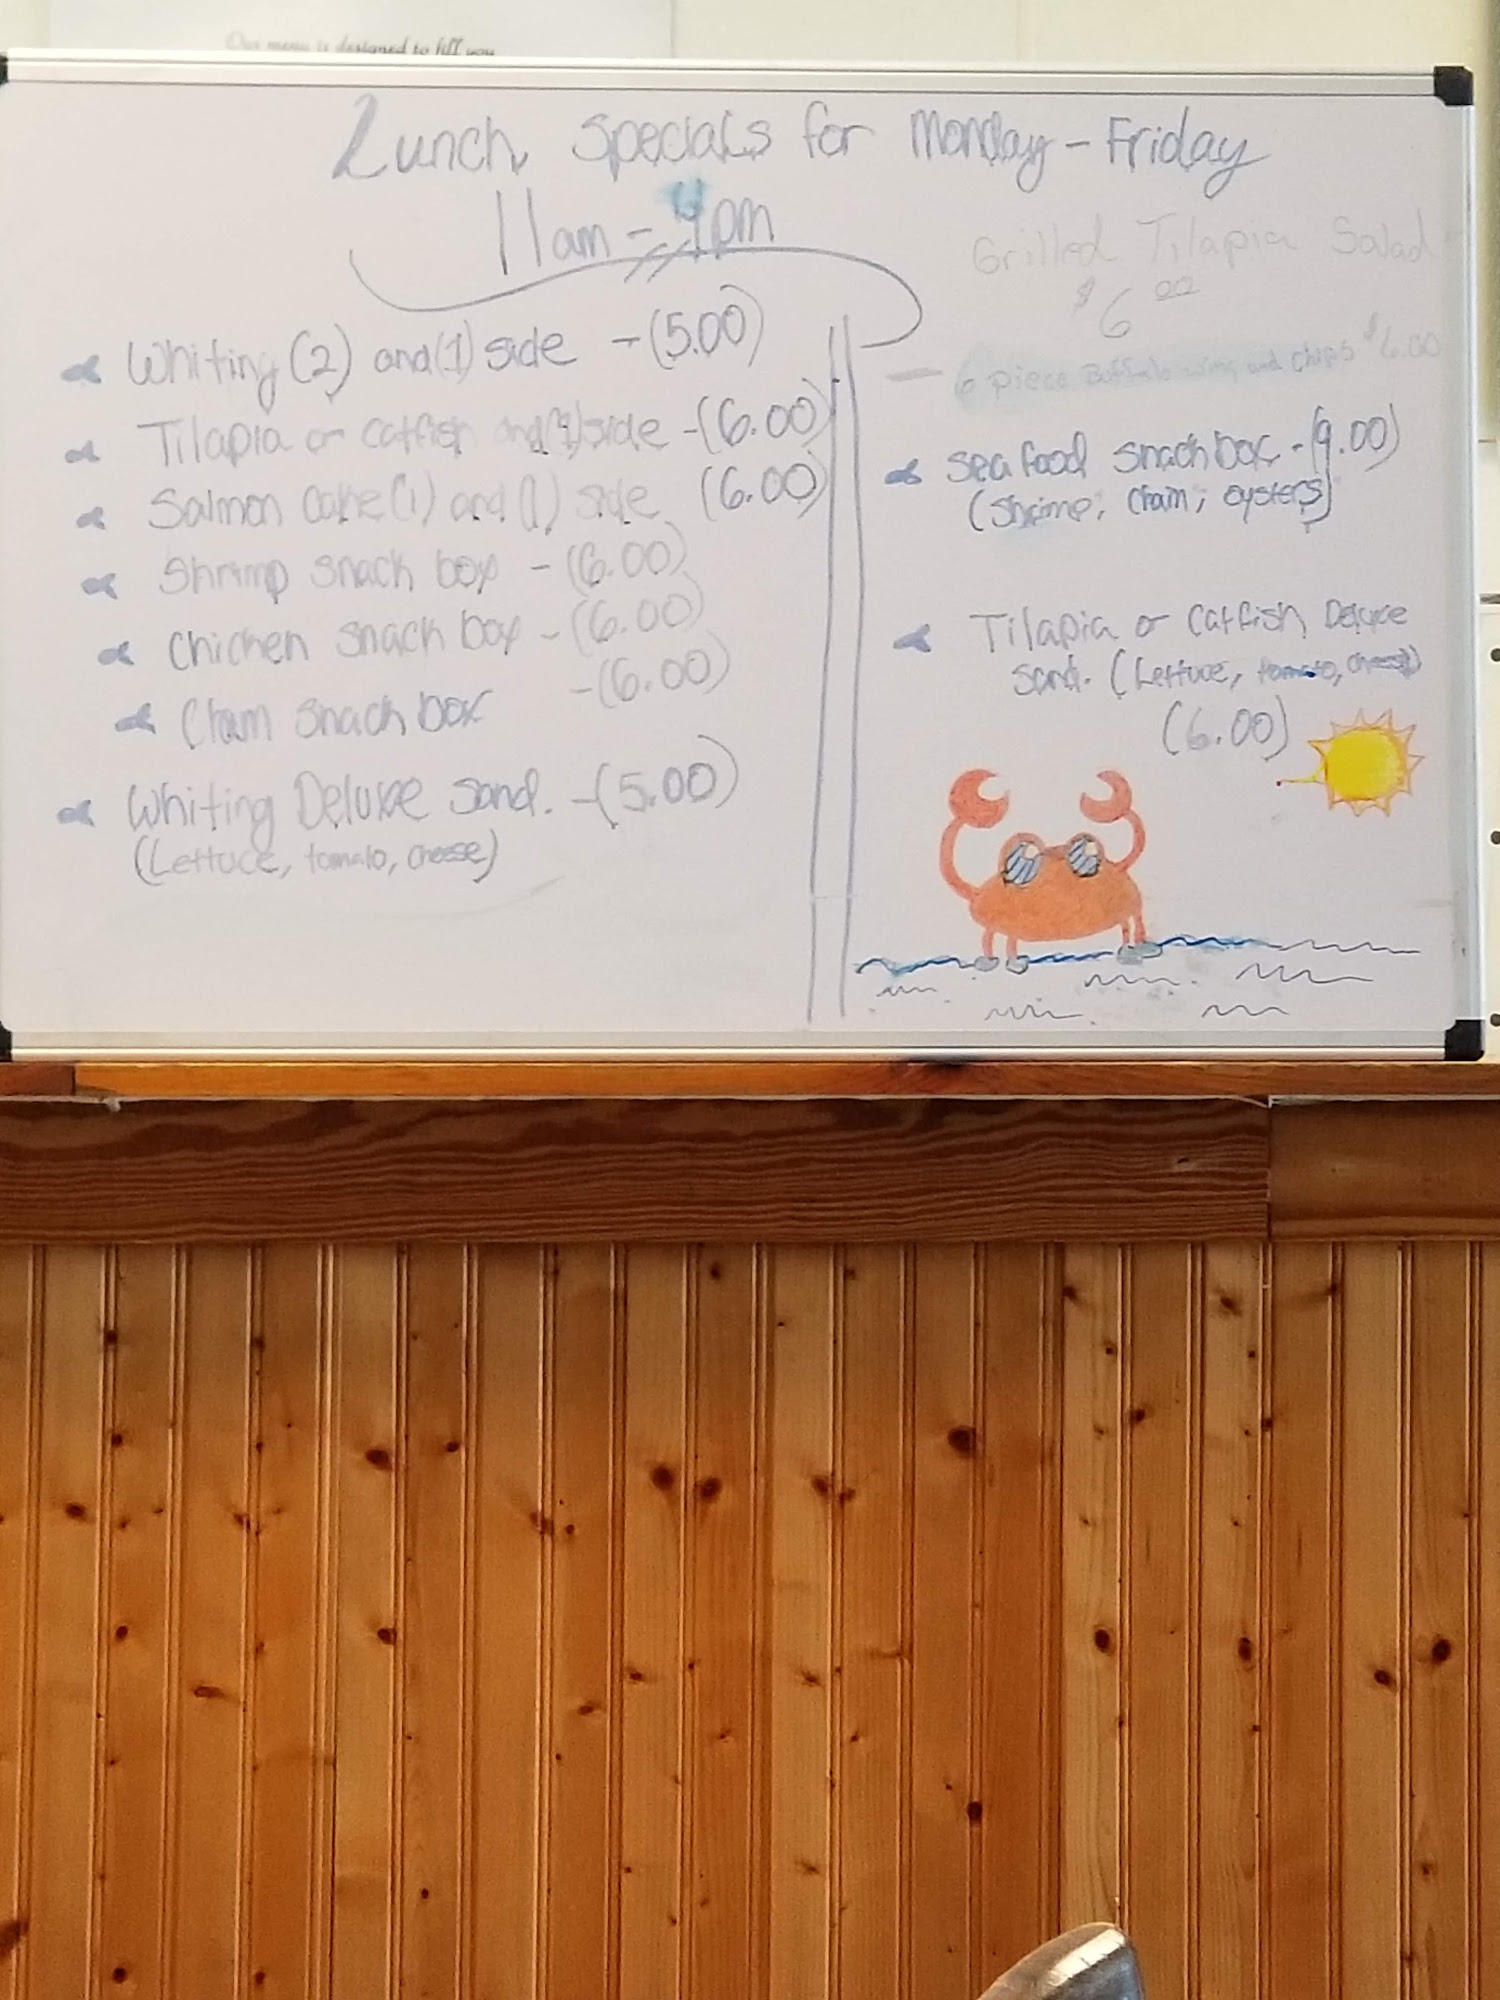 Our menu is designed to fill you
Lunch Specials for Monday - Friday
11am - 4pm
Whiting (2) and (1) side - (5.00)
Tilapia or Catfish and (1) side - (6.00)
Salmon Cake (1) and (1) side (6.00)
Shrimp snack box - (6.00)
Chicken snack box - (6.00)
Clam snack box - (6.00)
Whiting Deluxe Sand. - (5.00)
(Lettuce, tomato, cheese)
Grilled Tilapia Salad
$6.00
- 6 piece Buffalo wing and chips $6.00
Seafood snack box - (9.00)
(Shrimp, Clam, oysters)
Tilapia or Catfish Deluxe
Sand. (Lettuce, tomato, cheese)
(6.00)